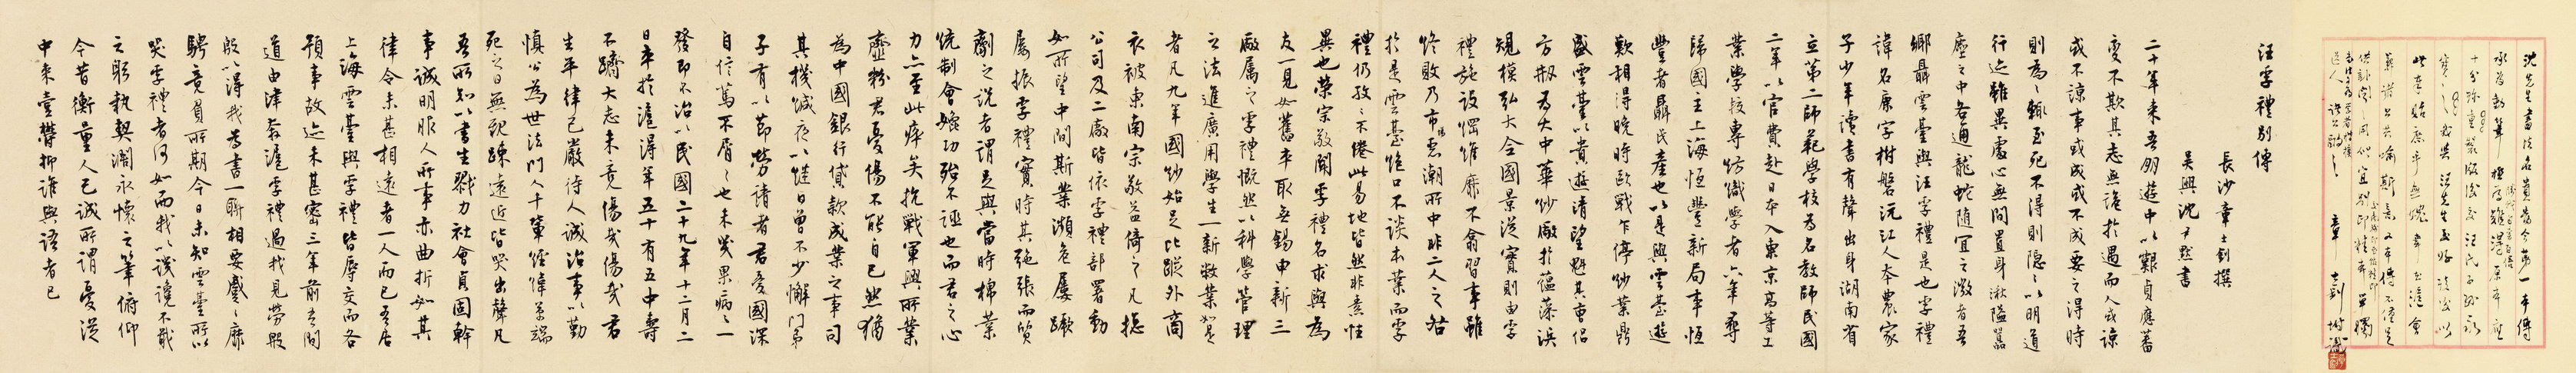 沈先生書法名貴為今第一
汪孚禮別傳
長沙章士釗撰
吳興沈尹默書
二十年來吾朋遊中以艱貞應蕃
變不欺其志無詭於遇而人或諒
或不諒事或成或不成要之得時
則為之輒至死不得則隱之以明道
行迹雖異處心無間置身湫隘囂
塵之中各通龍蛇隨宜之澂者吾
鄉聶雲臺與汪孚禮是也孚禮
諱名康字樹磐沅江人本農家
子少年讀書有聲出身湖南省
立第二師範學校為名教師民國
二年以官費赴日本入東京高等工
業學校專紡織學者六年卒
歸國主上海恒豐新局事恒
豐者聶氏產也以是與雲臺遊
歡相得晚時歐戰乍停紗業鼎
盛雲臺以貴遊清望魁其曹侶
方刱為大中華紗廠於蘊藻浜
規模弘大全國景從實則由孚
禮施設擘雖廉不翕習事雖
終敗乃市場惡潮所中非二人之咎
於是雲臺惟口不談本業而孚
禮仍孜孜不倦此易地皆然非素性
異也榮宗敬聞孚禮名求與為
友一見如舊卒取無錫申新三
廠屬之孚禮慨然以科學管理
之法進廣用學生一新斯業如是
者凡九年國紗始足比蹤外商
衣被東南宗敬益倚之凡總
公司及二廠皆依孚禮部署動
如所望中間斯業瀕危屢蹶
屢振孚禮實時其弛張而質
劑之說者謂足與當時棉業
統制會媲功殆不誣也而君之心
力亦至此瘁矣抗戰軍興所業
齏粉君憂傷不能自已然猶
為中國銀行貸款成業之事司
其機緘夜以繼日曾不少懈門弟
子有以節勞請者君憂國深
自信篤不屑屑也未幾果病病一
發即不治以民國二十九年十二月二
日卒於滬得年五十有五中壽
不躋大志未竟傷哉傷哉君
生平律己嚴待人誠治事以勤
慎公為世法門人千輩經緯萬端
死之日無親疎遠近皆哭出聲凡
吾所知以書生戮力社會貞固幹
事誠明服人所事亦曲折如其
律令未甚相遠者一人而已吾居
上海雲臺與孚禮皆辱交而各
預事故迹未甚密三年前吾間
道由津奔滬孚禮過我見勞殷
殷以得我為書一聯相要戲戲靡
騁竟負所期今日未知雲臺所以
哭孚禮者何如而我以譏讒不載
之躬執契闊永懷之筆俯仰
今昔衡量人己誠所謂憂從
中來壹鬱抑誰與語者已